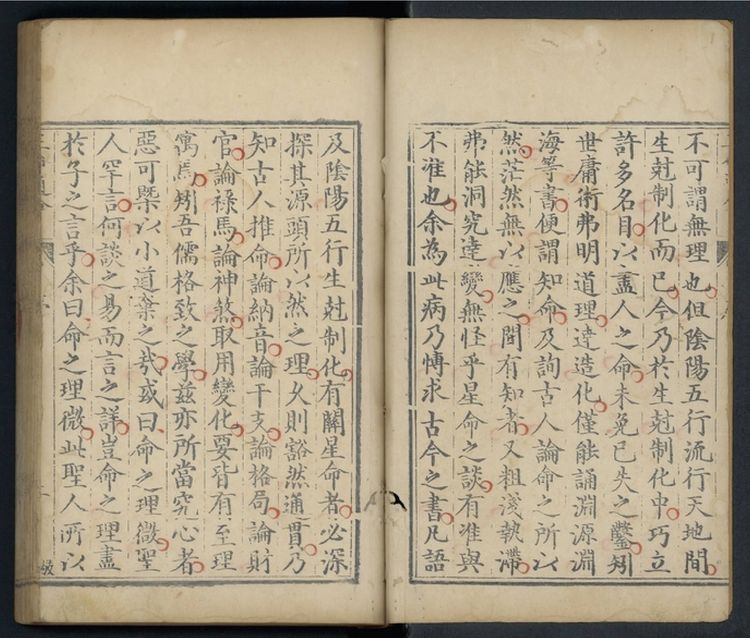 不可謂無理也但陰陽五行流行天地間
生尅制化而已今乃於生尅制化中巧立
許多名目以盡人之命未免已失之鑿矧
世庸術弗明道理達造化僅能誦淵源淵
海等書便謂知命及詢古人論命之所以
然茫然無以應之間有知者又粗淺執滯
弗能洞究達變無怪乎星命之談有准與
不准也余為此病乃愽求古今之書凡語
及陰陽五行生尅制化有關星命者必深
探其源頭所以然之理久則豁然通貫乃
知古人推命論納音論干支論格局論財
官論祿馬論神煞取用變化要皆有至理
寓焉矧吾儒格致之學茲亦所當究心者
惡可槩以小道棄之㢤或曰命之理微聖
人罕言何談之易而言之詳豈命之理盡
於子之言乎余曰命之理微此聖人所以